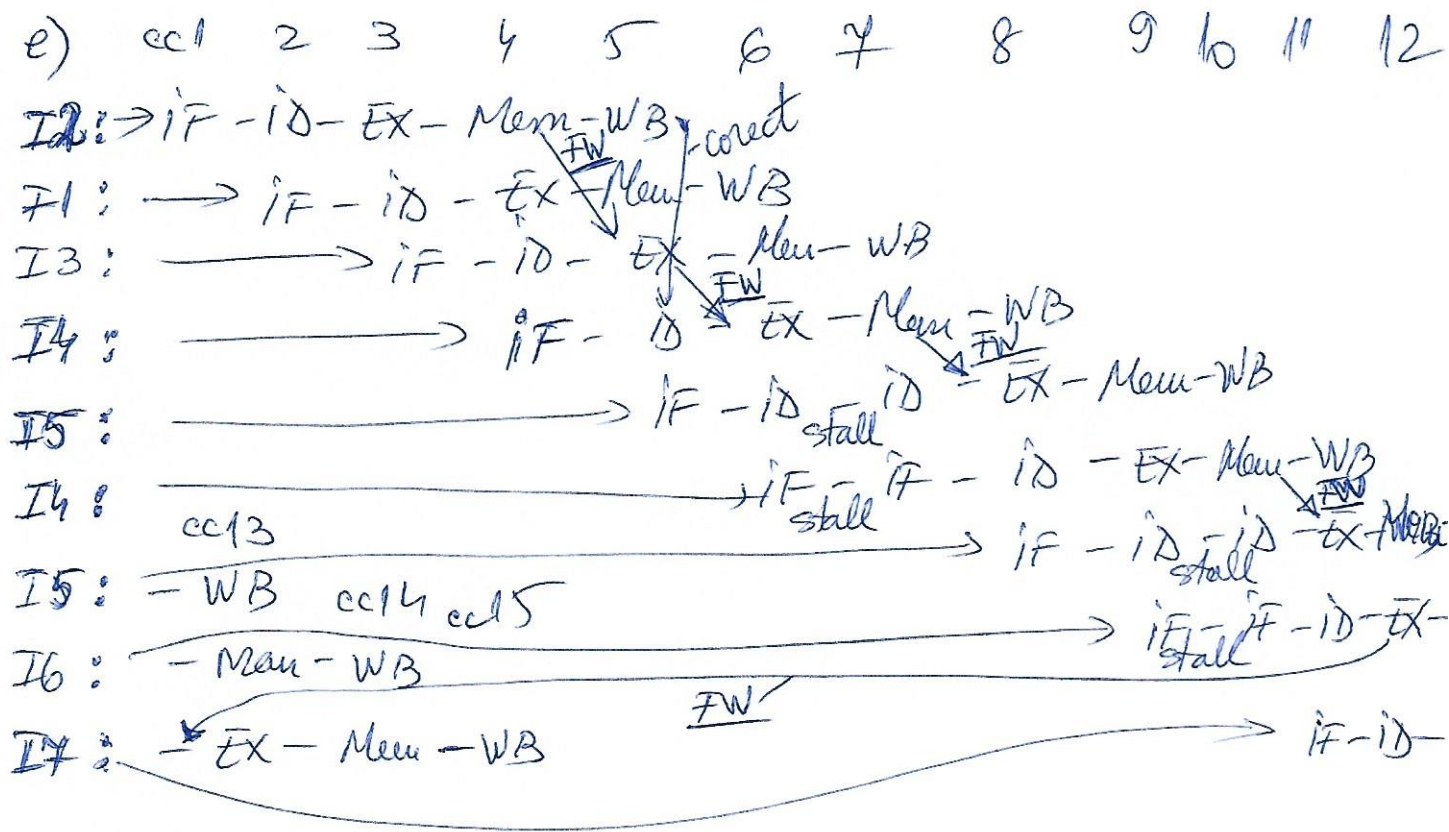 e) cc1 2 3 4 5 6 7 8 9 10 11 12
I2: → iF - iD - EX - Mem - WB corect
FW
I1: → iF - iD - EX - Mem - WB
I3: → iF - iD - EX - Mem - WB
FW
I4: → iF - iD - EX - Mem - WB
FW
I5: → iF - iD stall iD - EX - Mem - WB
I4: → iF - stall iF - iD - EX - Mem - WB
FW
cc13
I5: → iF - iD - stall iD - EX -
- WB cc14 cc15
I6: → iF - stall iF - iD - EX -
- Mem - WB
FW
I7: → iF - iD -
- EX - Mem - WB